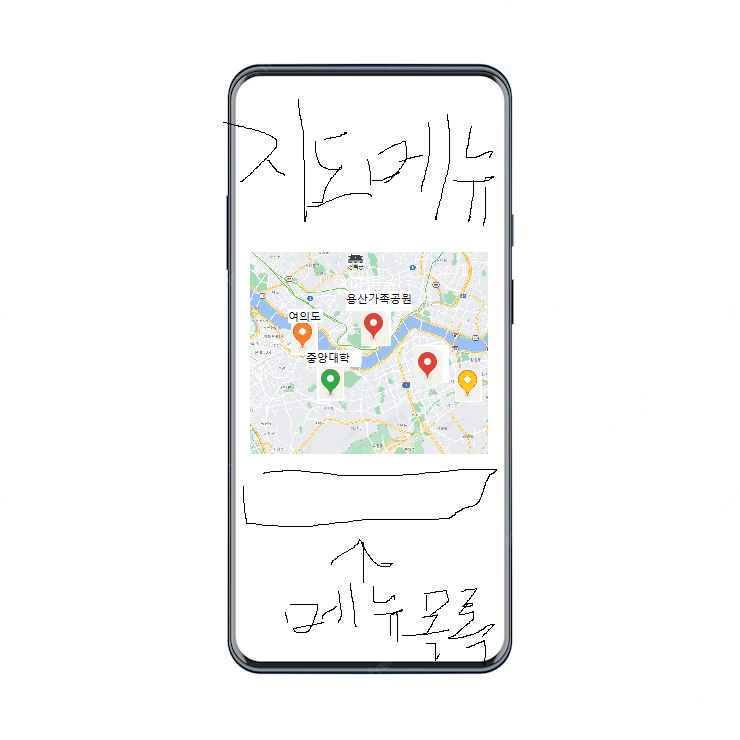 지도메뉴
용산가족공원
여의도
중앙대학
메뉴목록